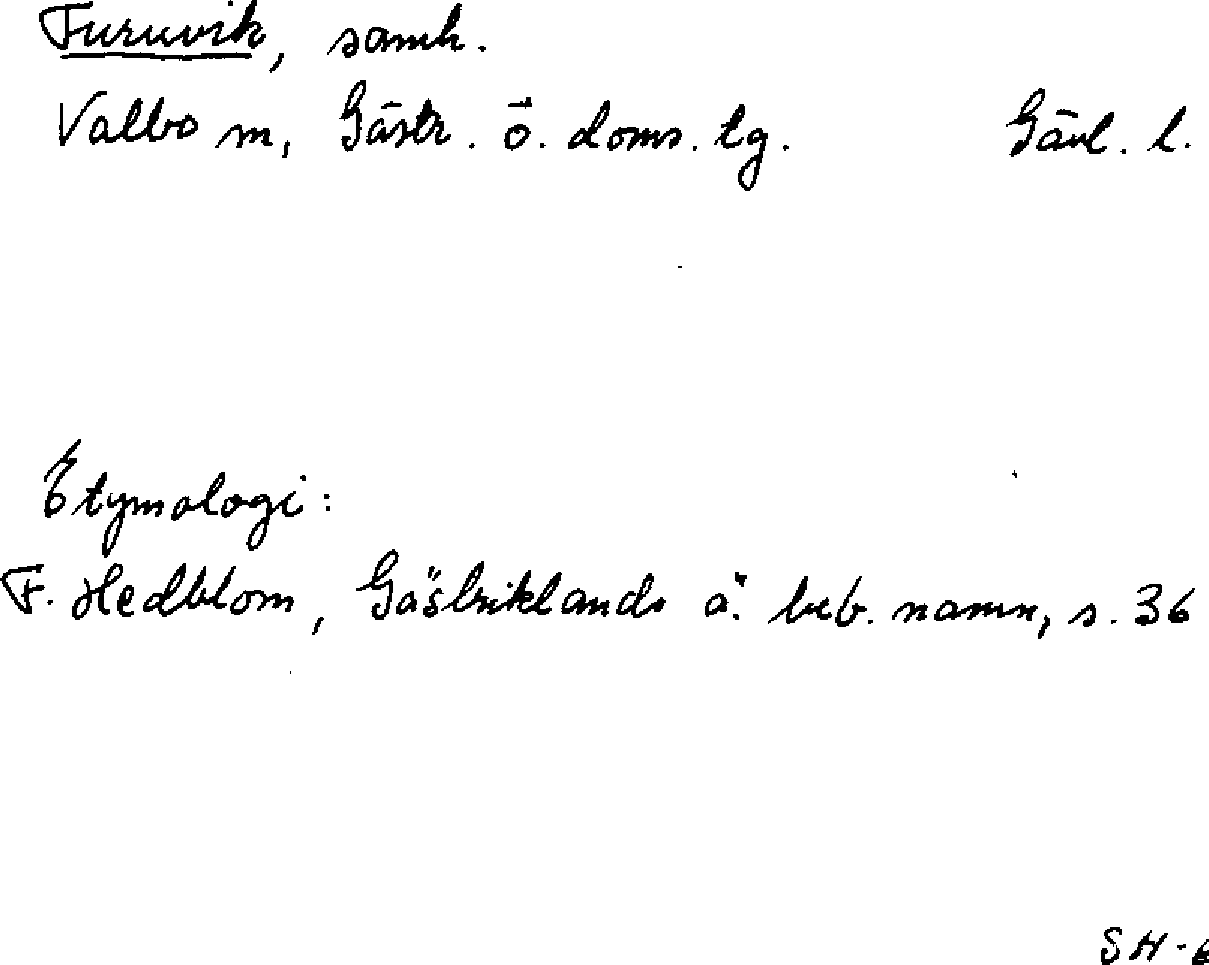 Furuvik, samh.
Valbo sn, Gästr. ö. doms. tg. Gävl. l.
Etymologi:
F. Hedblom, Gästriklands ä. beb. namn, s. 36
SH-6